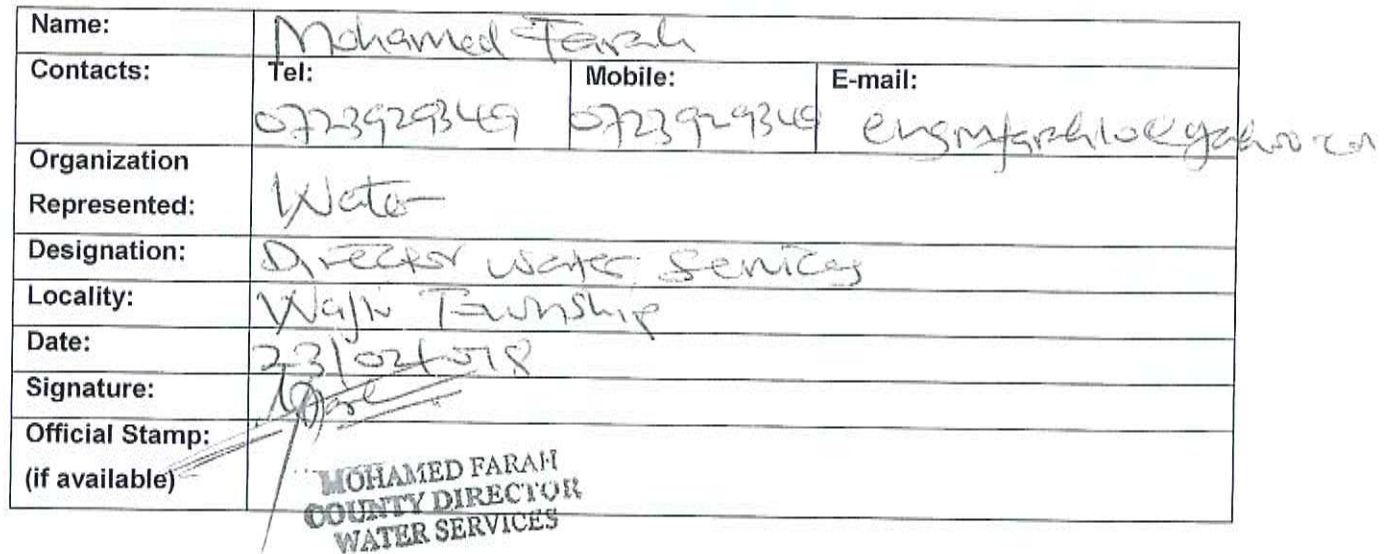 Name: Mohamed Farah
Contacts: Tel: Mobile: E-mail:
0723929349 0723929349 engmfarah10@yahoo.com
Organization
Represented: Water
Designation: Director water services
Locality: Wajir Township
Date: 23/02/018
Signature:
Official Stamp:
(if available)
MOHAMED FARAH
COUNTY DIRECTOR
WATER SERVICES